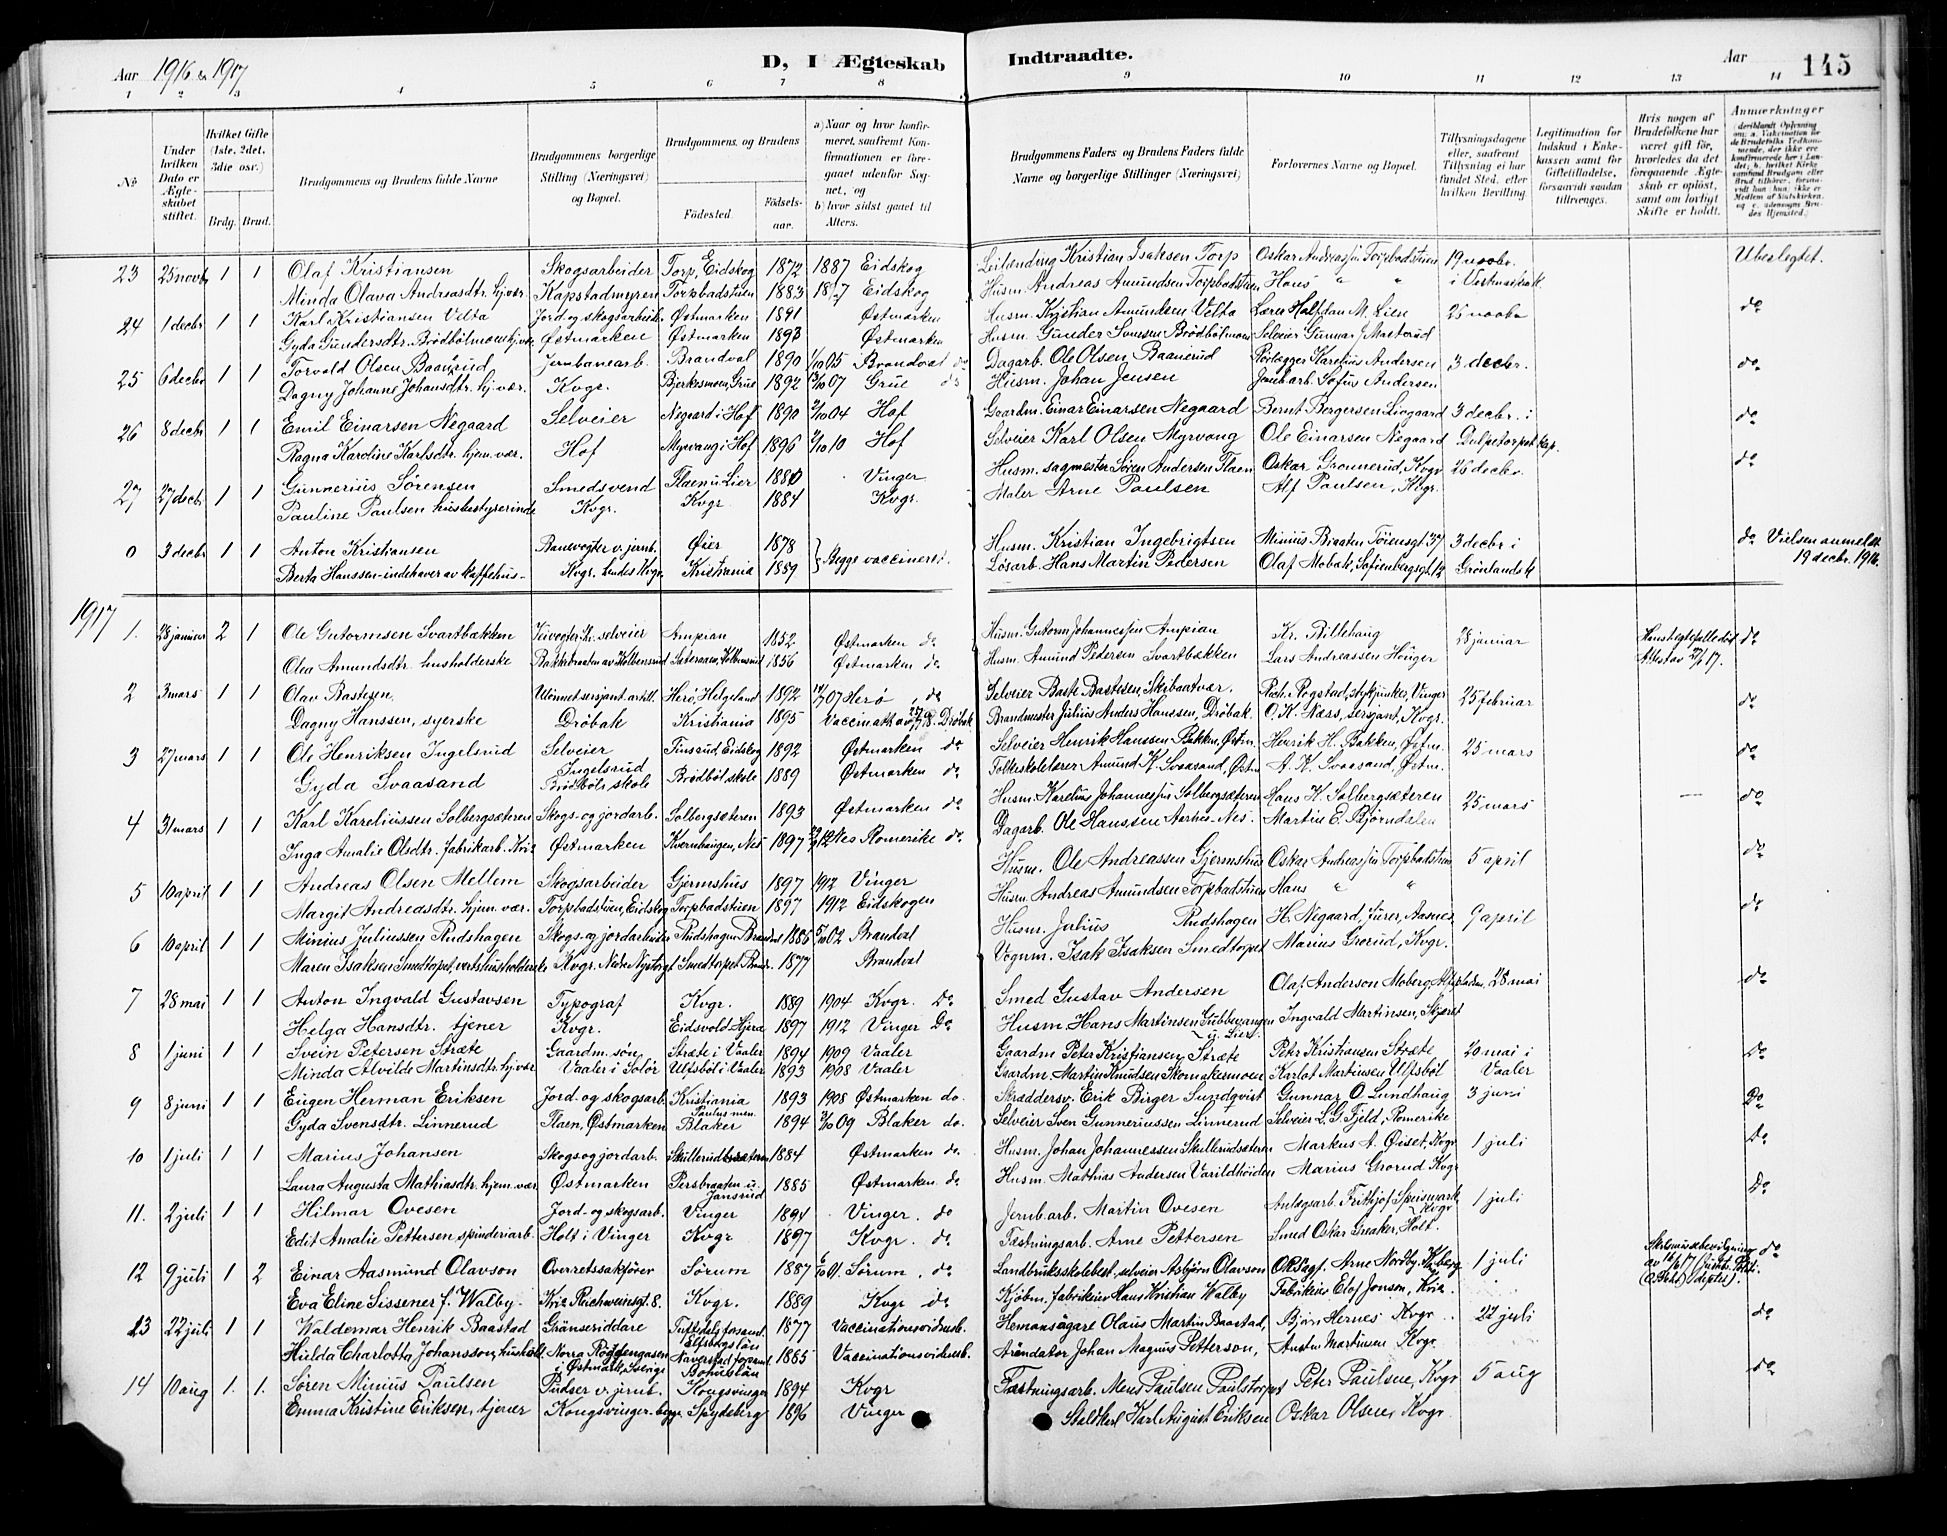 Aar 1916 & 1917
D, I Ægteskab Indtraadte.
Aar 145
1 2 3 4 5 6 7 8 9 10 11 12 13 14
No
Under hvilken Dato er Ægteskabet stiftet.
Hvilket Gifte (1ste, 2det, 3die osv.)
Brdg. Brud.
Brudgommens og Brudens fulde Navne
Brudgommens borgerlige Stilling (Næringsvei) og Bopæl.
Brudgommens og Brudens
Fødested.
Fødselsaar.
a) Naar og hvor konfirmeret, saafremt Konfirmationen er foregaaet udenfor Sognet, og
b) hvor sidst gaaet til Alters.
Brudgommens Faders og Brudens Faders fulde Navne og borgerlige Stillinger (Næringsvei)
Forlovernes Navne og Bopæl.
Tillysningsdagene eller, saafremt Tillysning ei har fundet Sted, efter hvilken Bevilling
Legitimation for Indskud i Enkekassen samt for Giftetilladelse, forsaavidt saadan tiltrænges.
Hvis nogen af Brudefolkene har været gift før, hvorledes da det foregaaende Ægteskab er opløst, samt om lovligt Skifte er holdt.
Anmærkninger
23 25 novbr 1 1 Olaf Kristiansen Skogsarbeider Torp, Eidskog 1872 1887 Eidskog Leilænding Kristian Isaksen Torp Oskar Andreassen Torpbadstuen 19 novbr. Ubeslegtet.
Minda Olava Andreasdtr. hj. vær. Kapstadmyren Torpbadstuen 1883 Eidskog Husm. Andreas Amundsen Torpbadstuen Hans " "
24 1 decbr 1 1 Karl Kristiansen Velta Jord. og skogsarbeider Østmarken 1891 Østmarken Husm. Kristian Amundsen Velta Lærer Halfdan M. Lien 26 novbr do
Gyda Gundersdtr. Brødbølmoen hj. vær Østmarken Østmarken 1893 Østmarken Husm. Gunder Svensen Brødbølmoen Selveier Gunnar J. Masterud
25 6 decbr 1 1 Torvald Olsen Baanerud Jernbanearb. Brandval 1890 Brandval do Dagarb. Ole Olsen Baanerud Rørlægger Karelius Andersen 3 decbr. do
Dagny Johanne Johansdtr. hj. vær. Kvgr. Bjerkesmoen, Grue 1892 Grue do Husm. Johan Jensen Jernb.arb. Sofus Andersen
26 8 decbr 1 1 Emil Einarsen Negaard Selveier Negaard i Hof 1890 2/10 04 Hof Gaardm. Einar Einarsen Negaard Bernt Bergersen Liegaard 3 decbr. i do
Ragna Karoline Karlsdtr. hjem. vær. Hof Myrvang i Hof 1896 2/10 10 Hof Selveier Karl Olsen Myrvang Ole Einarsen Negaard Gulpetorpet kap.
27 27 decbr 1 1 Gunnerius Sørensen Smedsvend Flaen i Lier 1880 Vinger Husm. sagmester Søren Andersen Flaen Oskar Grønnerud, Kvgr 26 decbr. do
Pauline Paulsen husbestyrerinde Kvgr. Kvgr 1884 Kvgr. Maler Arne Paulsen Alf Paulsen, Kvgr.
0 3 decbr 1 1 Anton Kristiansen Banevogter v. jernb. Øier 1878 Begge vaccineret. Husm. Kristian Ingebrigtsen Minius Braaten Tøiensgt 37 3 decbr i do Vielsen anmeldt
Berta Hanssen - indehaver av kaffehus - Kvgr. Kristiania 1889 Løsarb. Hans Martin Pedersen Olaf Mobak, Sofienbergsgt 12 Grønlands k 19 decbr. 1916.
1917
1. 28 januar 2 1 Ole Gutormsen Svartbækken Veivogter, selveier Ampian 1852 Østmarken do Husm. Gutorm Johannessen Ampian Kr. Rillehaug 28 januar do
Olea Amundsdtr. husholderske 1856 Østmarken do Husm. Amund Pedersen Svartbækken Lars Andreassen Houger Attest av 27/1 17.
2 3 mars 1 1 Olav Bastesen Utlønnet sersjant artill. Herø, Helgeland 1892 Herø do Selveier Baste Bastesen, Skibaatvær. Rogstad, stykjunker, Vinger 25 februar do
Dagny Hanssen, syerske Drøbak Kristiania 1895 Vaccinatt. av Drøbak Brandmester Julius Anders Hanssen, Drøbak O. K. Næss, sersjant, Kvgr.
3 27 mars 1 1 Ole Henriksen Ingelsrud Selveier Finsrud, Eidskog 1892 Østmarken do Selveier Henrik Hanssen Bakken, Østm. Henrik H. Bakken, Østm. 25 mars do
Gyda Svaasand Ingelsrud Brødbøl skole Brødbøl skole 1889 Østmarken do Folkeskolelærer Amund K. Svaasand, Østm A. K. Svaasand, Østm.
4 31 mars 1 1 Karl Kareliussen Solbergsæteren Skogs- og jordarb. Solbergsæteren 1893 Østmarken do Husm. Karelius Johannessen Solbergsæteren Hans K. Solbergsæteren 25 mars — do
Inga Amalie Olsdtr. fabrikarb. Kria Østmarken Kvernhaugen, Nes 1897 Nes Romerike do Dagarb. Ole Hanssen Aarhus - Nes. Martin E. Bjørndalen
5 10 april 1 1 Andreas Olsen Mellem Skogsarbeider Gjermshus 1897 1912 Vinger Husm. Ole Andreassen Gjermshus Oskar Andreassen Torpbadstuen 5 april do
Margit Andreasdtr. hjem. vær. Torpbadstuen, Eidskog Torpbadstuen 1897 1912 Eidskogen Husm. Andreas Amundsen Torpbadstuen Hans " "
6 10 april 1 1 Minius Juliussen Rudshagen Skogs. og jordarbeider Rudshagen Brandval 1886 5/10 02 Brandval Husm. Julius Rudshagen H. Negaard, fører, Aasnes 9 april do
Maren Isaksen Smedtorpet, vertshusholderske Kvgr. Nedre Nystrgt Smedtorpet Brandv. 1877 Brandval Vognm. Isak Isaksen Smedtorpet Marius Grorud, Kvgr.
7 28 mai 1 1 Anton Ingvald Gustavsen Typograf Kvgr. 1889 1904 Kvgr. Do Smed Gustav Andersen Olaf Anderson Moberg, 28 mai do
Helga Hansdtr. tjener Kvgr. Eidsvold 1897 1912 Vinger Do Husm Hans Martinsen Gubbevangen u. Lier. Ingvald Martinsen, Skjæret
8 1 juni 1 1 Svein Petersen Stræte Gaardm. søn Stræte i Vaaler 1894 1909 Vaaler Gaardm Peter Kristiansen Stræte Peter Kristiansen Stræte 20 mai i Do
Minda Alvilde Martinsdtr. hj. vær Vaaler i Solør Ulfsbøl i Vaaler 1893 1908 Vaaler Gaardm. Martin Knudsen Skomakermoen Karlot Martinsen Ulfsbøl Vaaler
9 8 juni 1 1 Eugen Herman Eriksen Jord. og skogsarb. Kristiania Paulus men. 1893 1908 Østmarken do. Skræddersv. Erik Birger Sundqvist Gunnar O. Lundhaug 3 juni Do
Gyda Svensdtr. Linnerud Flaen, Østmarken Blaker 1894 Blaker do. Selveier Sven Gunneriussen Linnerud Selveier S. G. Fjeld, Romerike
10 1 juli 1 1 Marius Johansen Skogs og jordarb. Skullerudsæteren 1884 Østmarken do. Husm. Johan Johannessen Skullerudsæteren Markus A. Øiset, Kvgr 1 juli Do
Laura Augusta Mathiasdtr. hjem. vær Østmarken Persbraaten u. Jansrud 1885 Østmarken. do Husm. Mathias Andersen Varildheiden Marius Grorud Kvgr
11. 2 juli 1 1 Hilmar Ovesen Jord. og skogsarb. Vinger 1894 Vinger. do Jernb.arb. Martin Ovesen Anlægsarb. Frithjof Speismark Kvgr 1 juli Do
Edit Amalie Pettersen, spinderiarb. Holt i Vinger Kvgr 1897 Kvgr. do Fæstningsarb. Arne Pettersen Smed Oskar Greaker, Holt.
12 9 juli 1 2 Einar Aasmund Olavson Overretssakfører Sørum 1887 6/10 01 Sørum, do Landbruksskolebest., selveier Asbjørn Olavson ORSagf. Arne Nordby 1 juli Skilsmissebevilgning do
Eva Eline Sissener f. Walby. Kria Reichweinsgt. 8. Kvgr. 1889 Kvgr do Kjøbm. fabrikeier Hans Kristian Walby Fabrikeier Elof Jonson, Kria av 16/6 17
13 22 juli 1 1 Waldemar Henrik Baastad Gränseriddare 1877 Vaccinationsvidnesb. Hemansägare Olaus Martin Baastad, Bjørn Hernes Kvgr 22 juli do
Hulda Charlotta Johansson, Norra Röddengaasen i Østmark, Sverige Bohuslän 1885 Vaccinationsvidnesb. Arändator Johan Magnus Petterson, Anton Martinsen Kvgr
14 10 aug 1. 1. Søren Minius Paulsen Pudser v. jernb. Kongsvinger 1894 Kvgr Fæstningsarb. Mens Paulsen Paulstorpet Peter Paulsen, Kvgr 5 aug do
Emma Kristine Eriksen, tjener Kongsvinger begge Spydeberg 1896 Vinger Staldkarl Karl August Eriksen Oskar Olsen, Kvgr